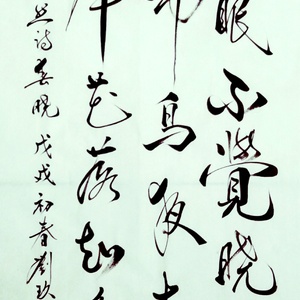 眠不覺曉
鳥夜
花落知
然詩春曉戊戌初春劉玖